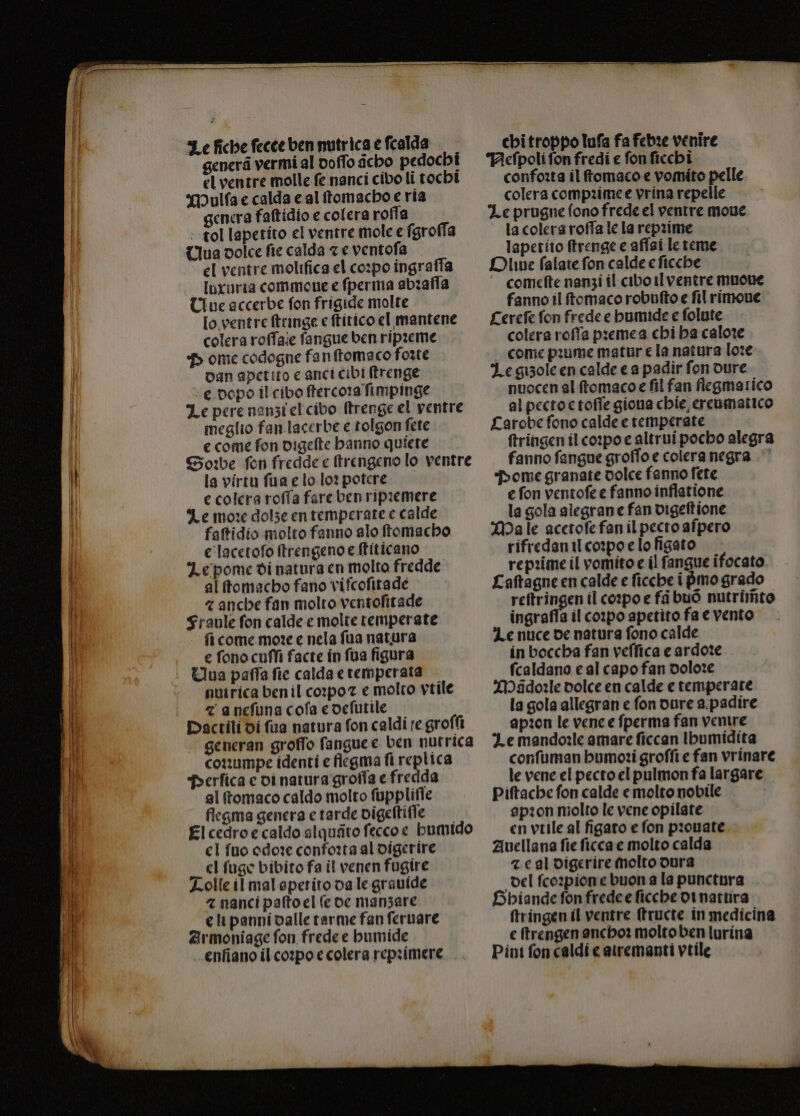 Le fiche secce ben nutrica e scalda
generã vermi al dosso ãcho pedochi
el ventre molle se nanci cibo li tochi
Mulsa e calda e al stomacho e ria
genera fastidio e colera rossa
tol lapetito el ventre mole e sgrossa
Uua dolce sie calda ⁊ e ventosa
el ventre molifica el corpo ingrassa
luxuria commoue e sperma abrassa
Uue accerbe son frigide molte
lo ventre stringe e stitico el mantene
colera rossa ⁊e sangue ben ripreme
Pome codogne fan stomaco forte
dan apetito e anci cibi strenge
e dopo il cibo stercora simpinge
Le pere nanzi el cibo strenge el ventre
meglio fan lacerbe e tolgon sete
e come son digeste hanno quiete
Sorbe son fredde e strengeno lo ventre
la virtu sua e lo lor potere
e colera rossa fare ben ripremere
Le more dolze en temperate e calde
fastidio molto fanno alo stomacho
e lacetoso strengeno e stiticano
Le pome di natura en molto fredde
al stomacho fano viscositade
⁊ anche fan molto ventositade
Fraule son calde e molte temperate
si come more e nela sua natura
e sono cussi facte in sua figura
Uua passa sie calda e temperata
nutrica ben il corpo ⁊ e molto vtile
⁊ a nesuna cosa e desutile
Dactili di sua natura son caldi ⁊e grossi
generan grosso sangue e ben nutrica
corrumpe identi e flegma si replica
Persica e di natura grossa e fredda
al stomaco caldo molto supplisse
flegma genera e tarde digestisse
El cedro e caldo alquãto secco e humido
el suo odore conforta al digerire
el suge bibito fa il venen fugire
Tolle il mal apetito da le grauide
⁊ nanci pasto el se de manzare
e li panni dalle tarme fan seruare
Armoniage son frede e humide
enfiano il corpo e colera reprimere
chi troppo lusa fa febre venire
Nespoli son fredi e son sicchi
conforta il stomaco e vomito pelle
colera comprime e vrina repelle
Le prugne sono frede el ventre moue
la colera rossa le la reprime
lapetito strenge e assai le teme
Oliue salate son calde e sicche
comeste nanzi il cibo il ventre muoue
fanno il stomaco robusto e sil rimoue
Cerese son frede e humide e solute
colera rossa preme a chi ha calore
come prume matur e la natura lore
Le gizole en calde e a padir son dure
nuocen al stomaco e sil fan flegmatico
al pecto e tosse gioua chie, ereumatico
Carobe sono calde e temperate
stringen il corpo e altrui pocho alegra
fanno sangue grosso e colera negra
Pome granate dolce fanno sete
e son ventose e fanno inflatione
la gola alegran e fan digestione
Ma le acetose fan il pecto aspero
rifredan il corpo e lo figato
reprime il vomito e il sangue ifocato
Castagne en calde e sicche i p̃mo grado
restringen il corpo e fã buõ nutrim̃to
ingrassa il corpo apetito fa e vento
Le nuce de natura sono calde
in boccha fan vessica e ardore
scaldano e al capo fan dolore
Mãdorle dolce en calde e temperate
la gola allegran e son dure a padire
apron le vene e sperma fan venire
Le mandorle amare siccan lhumidita
consuman humori grossi e fan vrinare
le vene el pecto el pulmon fa largare
Pistache son calde e molto nobile
apron molto le vene opilate
en vtile al figato e son prouate
Auellana sie sicca e molto calda
⁊ e al digerire molto dura
del scorpion e buon a la punctura
Ghiande son frede e sicche di natura
stringen il ventre structe in medicina
e strengen anchor molto ben lurina
Pini son caldi e atremanti vtile